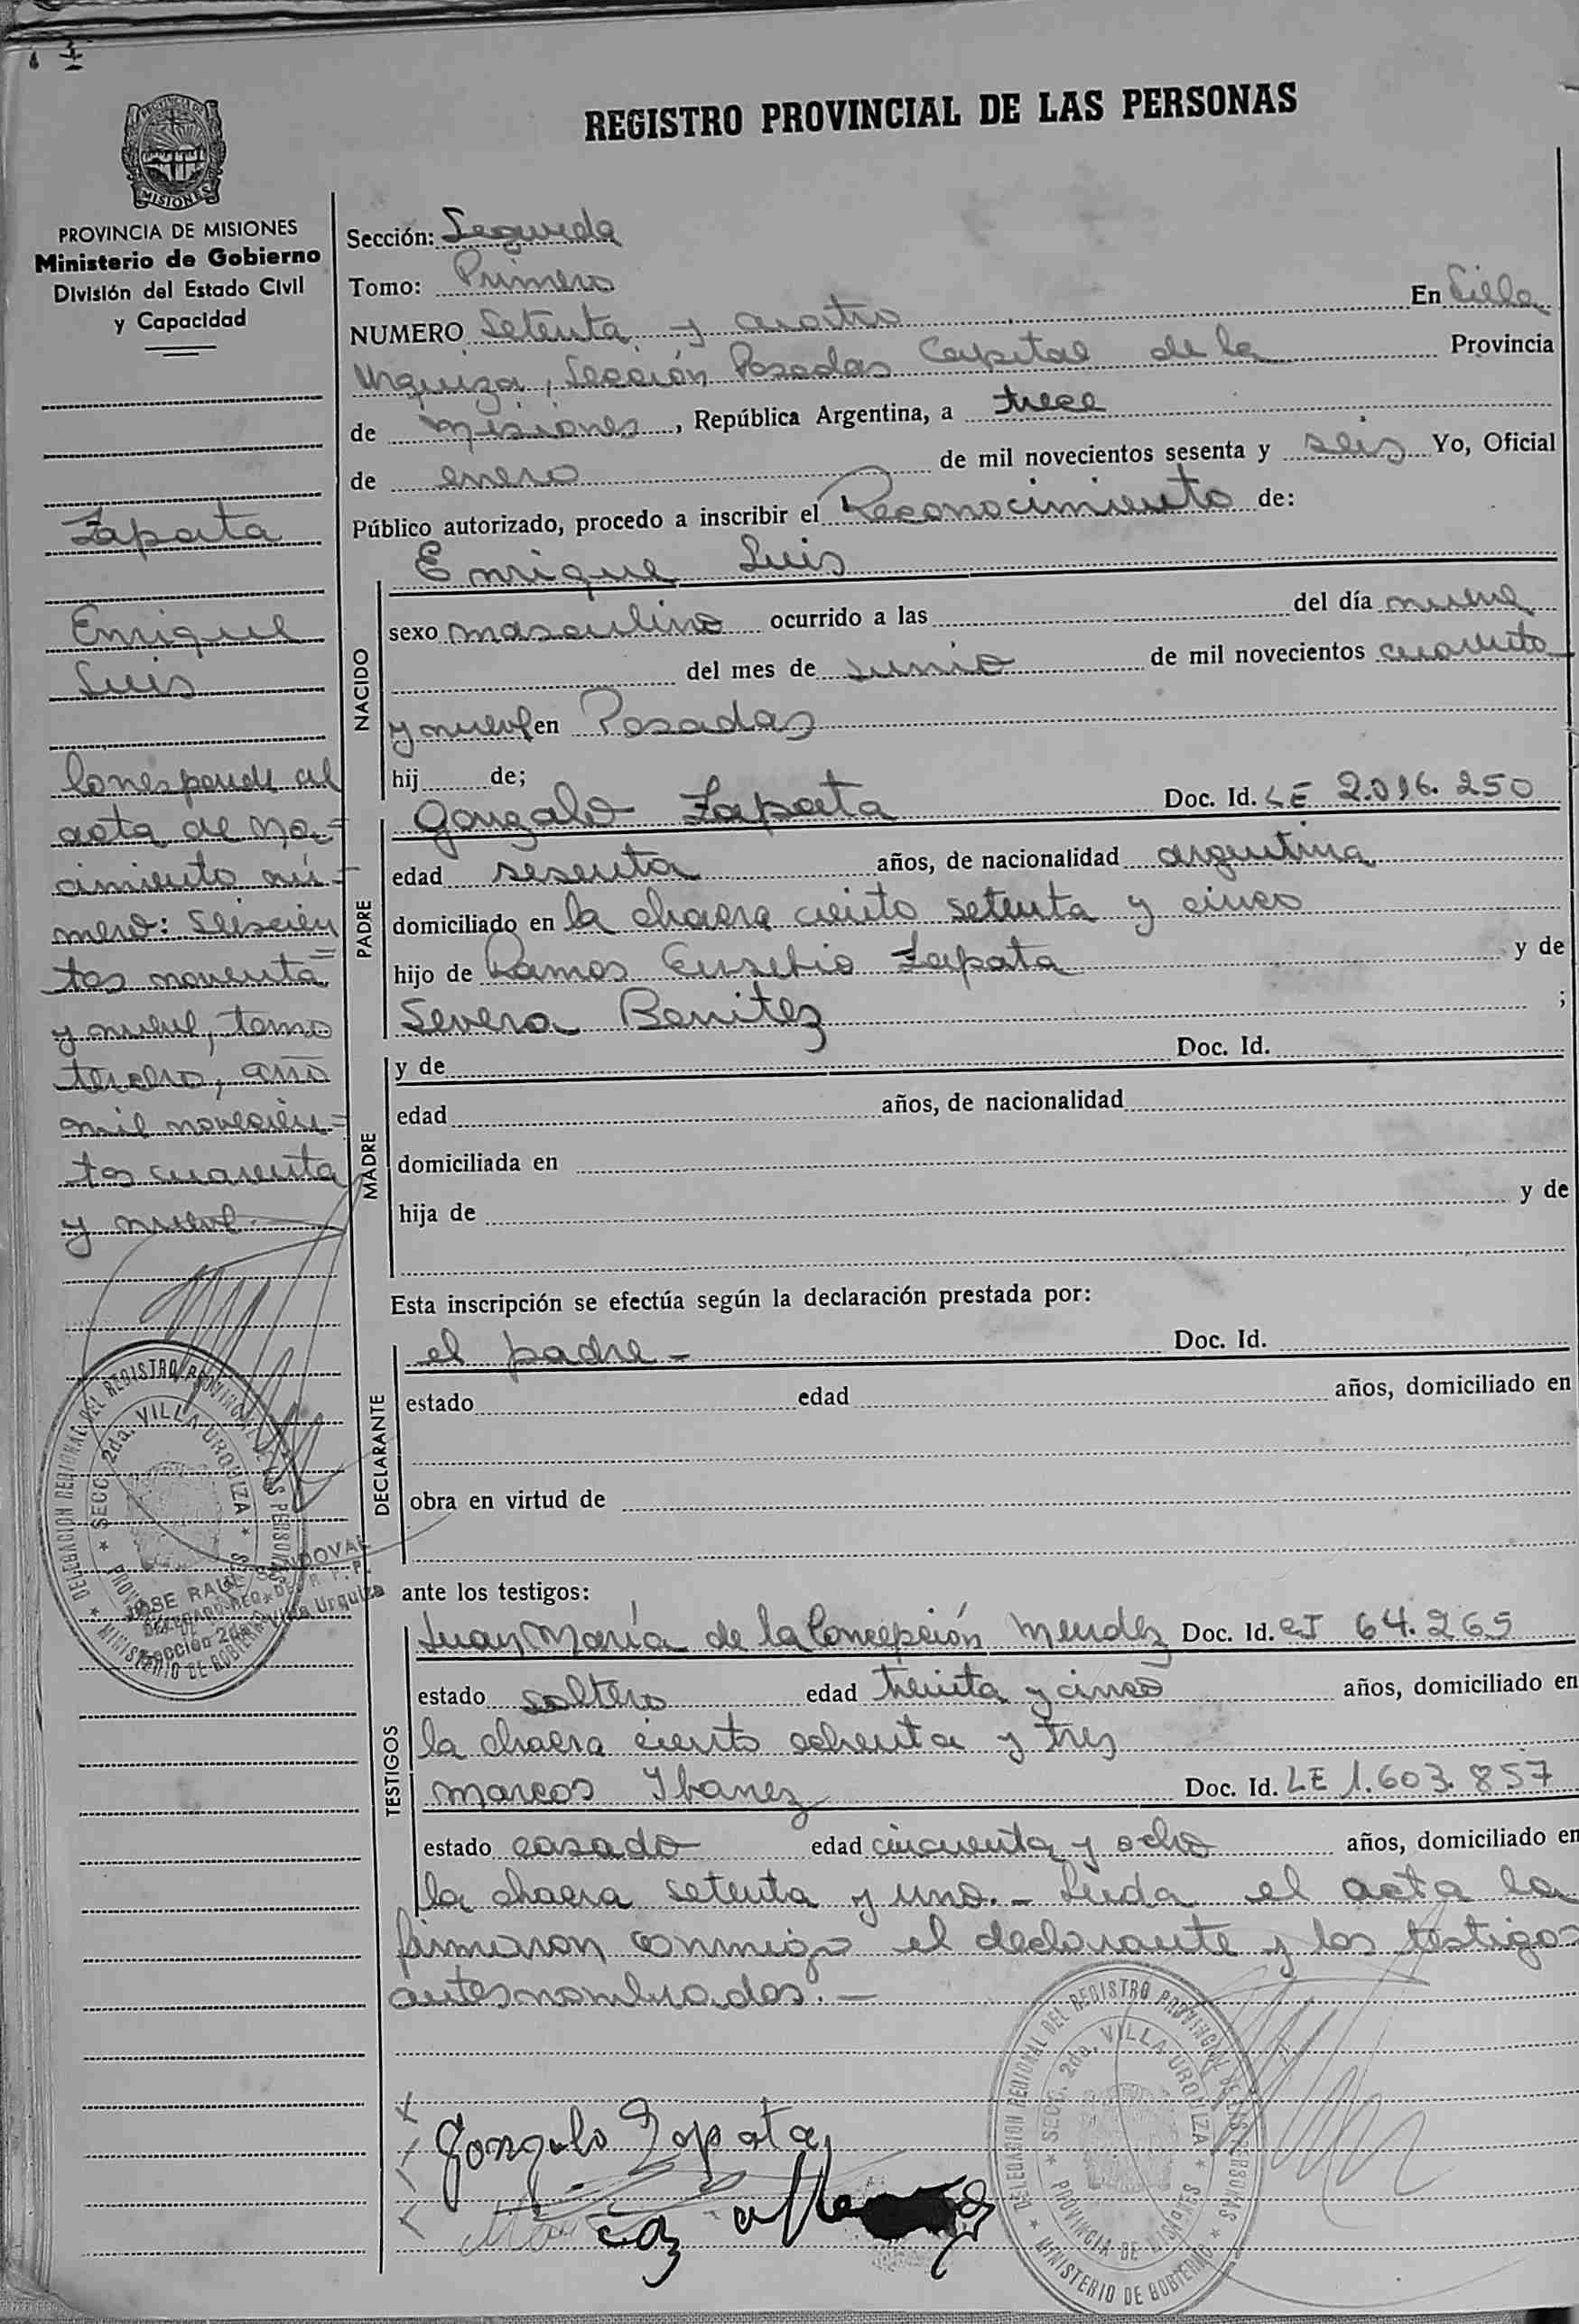 REGISTRO PROVINCIAL DE LAS PERSONAS
MISIONES
PROVINCIA DE MISIONES
Ministerio de Gobierno
División del Estado Civil
y Capacidad
Zapata
Enrique
Luis
Corresponde al
acta de na-
cimiento nú-
mero: seiscien
tos noventa
y nueve, tomo
tercero, año
mil novecien-
tos cuarenta
y nueve.
DELEGACION REGIONAL DEL REGISTRO PROVINCIAL DE LAS PERSONAS
SECC. 2da. VILLA URQUIZA
MINISTERIO DE GOBIERNO
JOSE RAUL SANDOVAL
DELEGADO REG. DEL R. P. P.
Sección 2da. Villa Urquiza
Sección: Segunda
Tomo: Primero
NUMERO Setenta y cuatro En Villa
Urquiza, Sección Posadas Capital de la Provincia
de Misiones, República Argentina, a trece
de enero de mil novecientos sesenta y seis Yo, Oficial
Público autorizado, procedo a inscribir el Reconocimiento de:
Enrique Luis
NACIDO
sexo masculino ocurrido a las del día nueve
del mes de Junio de mil novecientos cuarenta
y nueve en Posadas
hij de;
PADRE
Gonzalo Zapata Doc. Id. LE 2.016.250
edad sesenta años, de nacionalidad argentina
domiciliado en la chacra ciento setenta y cinco
hijo de Ramos Eusebio Zapata y de
Severa Benitez ;
MADRE
y de Doc. Id.
edad años, de nacionalidad
domiciliada en
hija de y de
Esta inscripción se efectúa según la declaración prestada por:
DECLARANTE
el padre - Doc. Id.
estado edad años, domiciliado en
obra en virtud de
ante los testigos:
TESTIGOS
Juan María de la Concepción Mendez Doc. Id. CI 64.265
estado soltero edad treinta y cinco años, domiciliado en
la chacra ciento ochenta y tres
Marcos Ibanez Doc. Id. LE 1.603.857
estado casado edad cincuenta y ocho años, domiciliado en
la chacra setenta y uno.- Leida el acta la
firmaron conmigo el declarante y los testigos
antesnombrados.-
Gonzalo Zapata
DELEGACION REGIONAL DEL REGISTRO PROVINCIAL DE LAS PERSONAS
SECC. 2da. VILLA URQUIZA
PROVINCIA DE MISIONES
MINISTERIO DE GOBIERNO